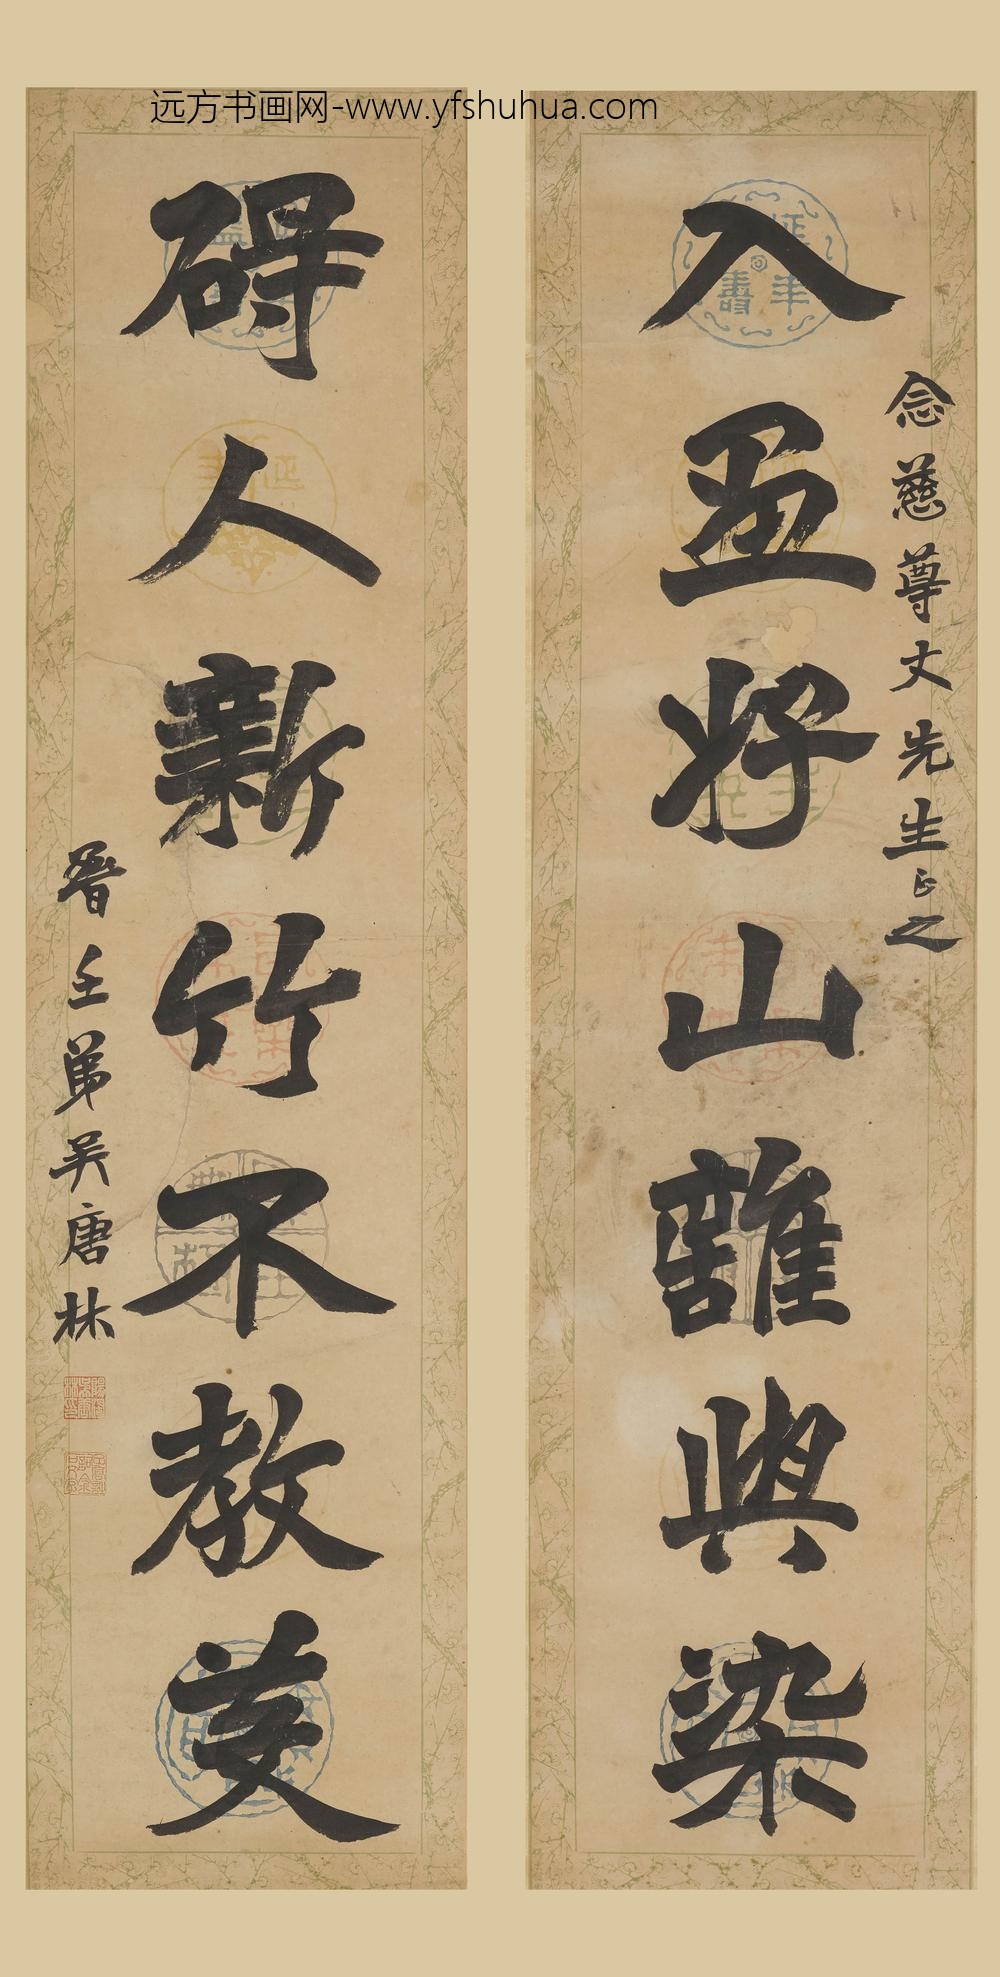 远方书画网-www.yfshuhua.com
念慈尊丈先生正之
入画好山谁與染
碍人新竹不教芟
晋壬弟吴唐林